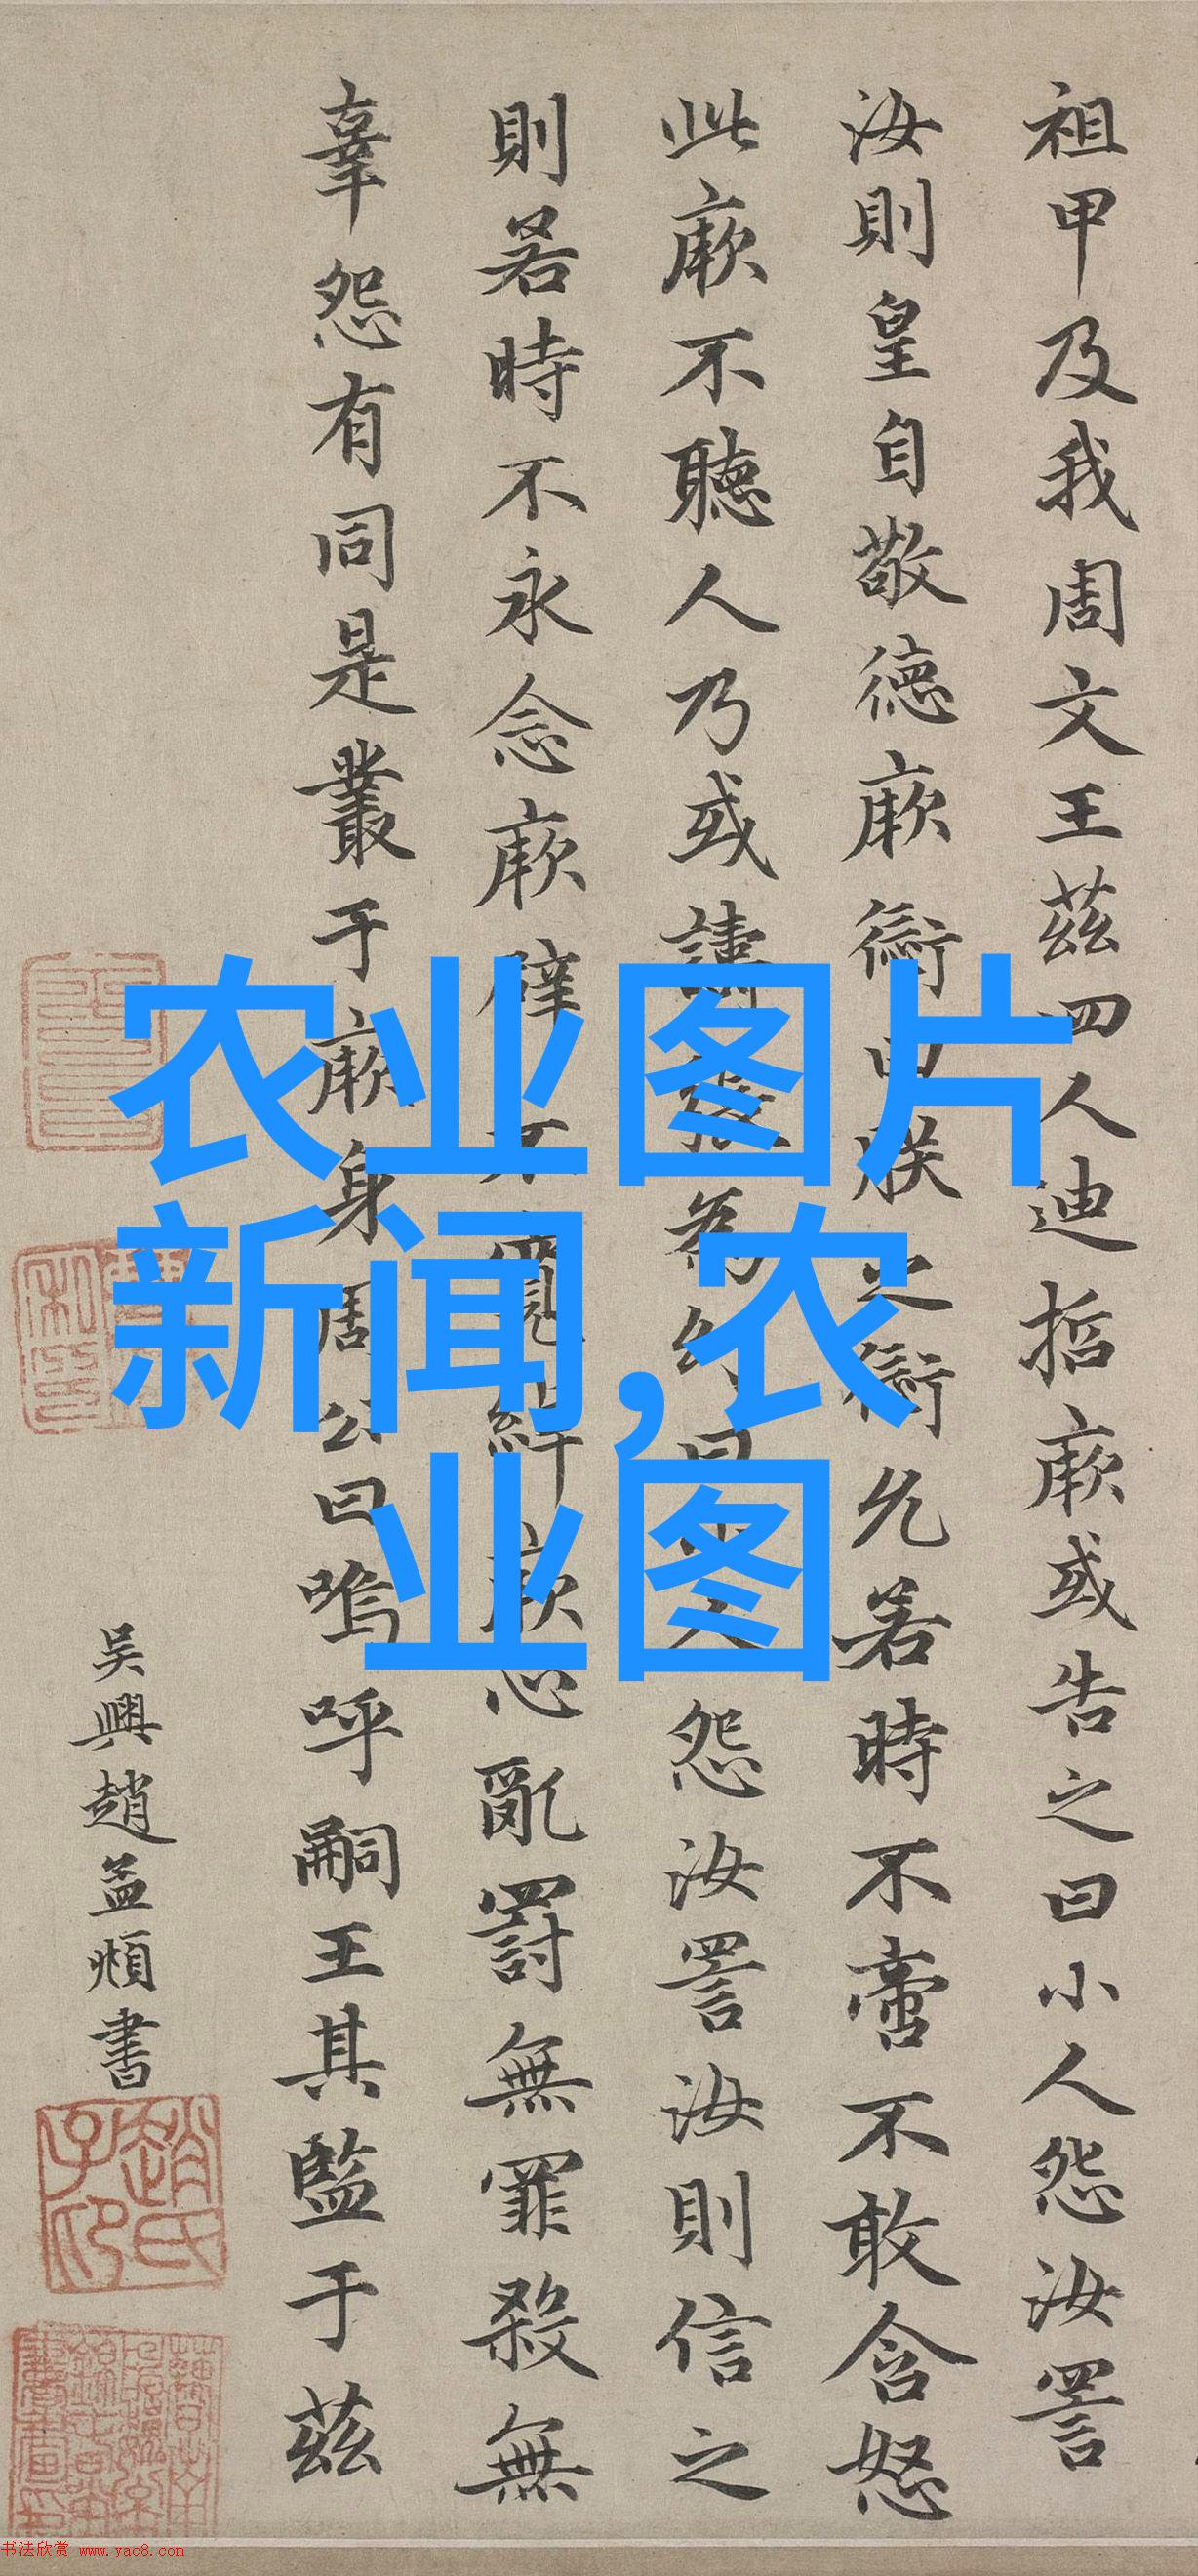 祖甲及我周文王茲四人迪哲厥或告之曰小人怨汝詈
汝則皇自敬德厥愆曰朕之愆允若時不啻不敢含怒
此厥不聽人乃或譸張為幻曰小人怨汝詈汝則信之
則若時不永念厥辟不寬綽厥心亂罰無罪殺無
辜怨有同是叢于厥身周公曰嗚呼嗣王其監于茲
吳興趙孟頫書
趙氏子印
农业图片
新闻,农
业图
书法欣赏 www.yac8.com